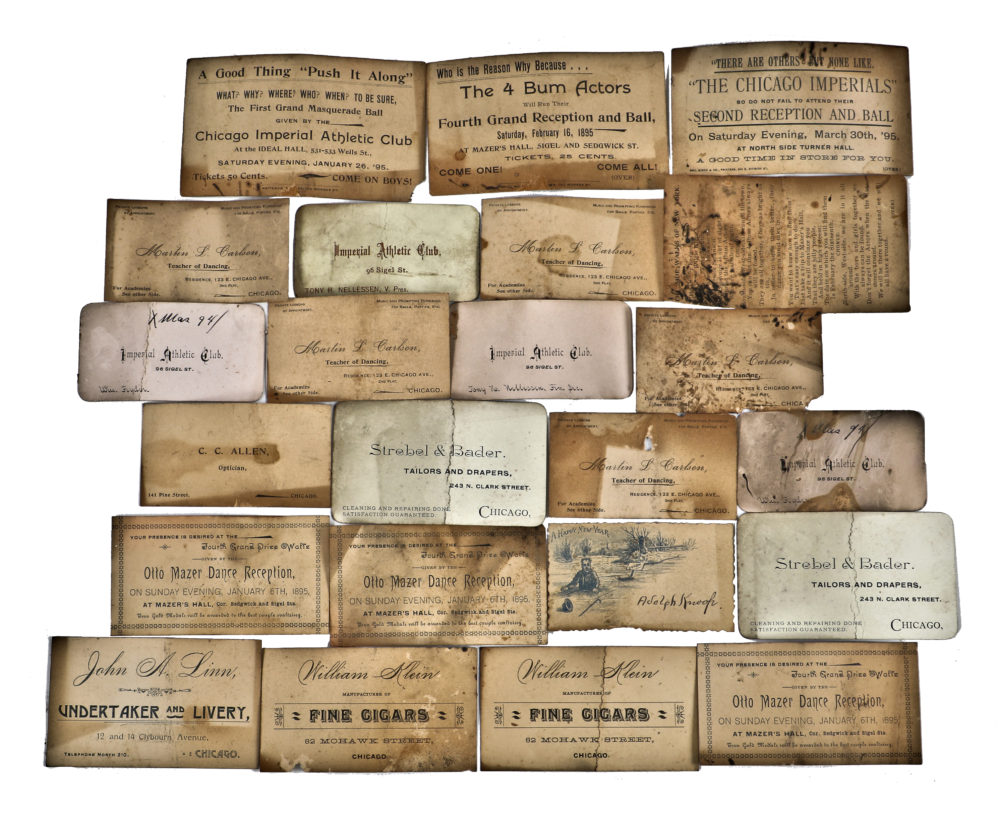 A Good Thing "Push It Along"
WHAT? WHY? WHERE? WHO? WHEN? TO BE SURE,
The First Grand Masquerade Ball
GIVEN BY THE
Chicago Imperial Athletic Club
At the IDEAL HALL, 531-533 Wells St.,
SATURDAY EVENING, JANUARY 26, '95.
Tickets 50 Cents. COME ON BOYS!
Who is the Reason Why Because . . .
The 4 Bum Actors
Will Run Their
Fourth Grand Reception and Ball,
Saturday, February 16, 1895
AT MAZER'S HALL, SIGEL AND SEDGWICK ST.
TICKETS, 25 CENTS.
COME ONE! COME ALL!
(OVER)
"THERE ARE OTHERS" BUT NONE LIKE.
"THE CHICAGO IMPERIALS"
SO DO NOT FAIL TO ATTEND THEIR
SECOND RECEPTION AND BALL
On Saturday Evening, March 30th, '95.
AT NORTH SIDE TURNER HALL.
A GOOD TIME IN STORE FOR YOU.
(OVER)
Private Lessons
by Appointment.
Music and Prompting Furnished
for Balls, Parties, Etc.
Martin L. Carlson,
Teacher of Dancing,
Residence, 123 E. Chicago Ave.,
2nd Flat,
For Academies
See other Side.
CHICAGO.
Imperial Athletic Club.
96 Sigel St.
TONY H. NELLESSEN, V. Pres.
Private Lessons
by Appointment.
Music and Prompting Furnished
for Balls, Parties, Etc.
Martin L. Carlson,
Teacher of Dancing,
Residence, 123 E. Chicago Ave.,
2nd Flat,
For Academies
See other Side.
CHICAGO.
SIDEWALKS OF NEW YORK.
XMas 94/
Imperial Athletic Club.
96 SIGEL ST.
Private Lessons
by Appointment.
Music and Prompting Furnished
for Balls, Parties, Etc.
Martin L. Carlson,
Teacher of Dancing,
Residence, 123 E. Chicago Ave.,
2nd Flat,
For Academies
See other Side.
CHICAGO.
Imperial Athletic Club.
96 SIGEL ST.
Tony H. Nellessen, Fin. Sec.
Private Lessons
by Appointment.
Music and Prompting Furnished
for Balls, Parties, Etc.
Martin L. Carlson,
Teacher of Dancing,
Residence, 123 E. Chicago Ave.,
2nd Flat,
For Academies
See other Side.
CHICAGO
C. C. ALLEN,
Optician,
141 Pine Street.
CHICAGO.
Strebel & Bader.
TAILORS AND DRAPERS,
243 N. CLARK STREET.
CLEANING AND REPAIRING DONE
SATISFACTION GUARANTEED.
CHICAGO,
Private Lessons
by Appointment.
Music and Prompting Furnished
for Balls, Parties, Etc.
Martin L. Carlson,
Teacher of Dancing,
Residence, 123 E. Chicago Ave.,
2nd Flat,
For Academies
See other Side.
CHICAGO.
XMas 94/
Imperial Athletic Club.
96 SIGEL ST.
YOUR PRESENCE IS DESIRED AT THE
Fourth Grand Prize Waltz
GIVEN BY THE
Otto Mazer Dance Reception,
ON SUNDAY EVENING, JANUARY 6TH, 1895,
AT MAZER'S HALL, Cor. Sedgwick and Sigel Sts.
Four Gold Medals will be awarded to the best couple waltzing.
YOUR PRESENCE IS DESIRED AT THE
Fourth Grand Prize Waltz
GIVEN BY THE
Otto Mazer Dance Reception,
ON SUNDAY EVENING, JANUARY 6TH, 1895,
AT MAZER'S HALL, Cor. Sedgwick and Sigel Sts.
Four Gold Medals will be awarded to the best couple waltzing.
A Happy New Year
Adolph Knoop
Strebel & Bader.
TAILORS AND DRAPERS,
243 N. CLARK STREET.
CLEANING AND REPAIRING DONE
SATISFACTION GUARANTEED.
CHICAGO,
John A. Linn,
UNDERTAKER AND LIVERY,
12 and 14 Clybourn Avenue,
TELEPHONE NORTH 310.
CHICAGO.
William Klein
MANUFACTURER OF
FINE CIGARS
62 MOHAWK STREET,
CHICAGO.
William Klein
MANUFACTURER OF
FINE CIGARS
62 MOHAWK STREET,
CHICAGO.
YOUR PRESENCE IS DESIRED AT THE
Fourth Grand Prize Waltz
GIVEN BY THE
Otto Mazer Dance Reception,
ON SUNDAY EVENING, JANUARY 6TH, 1895,
AT MAZER'S HALL, Cor. Sedgwick and Sigel Sts.
Four Gold Medals will be awarded to the best couple waltzing.